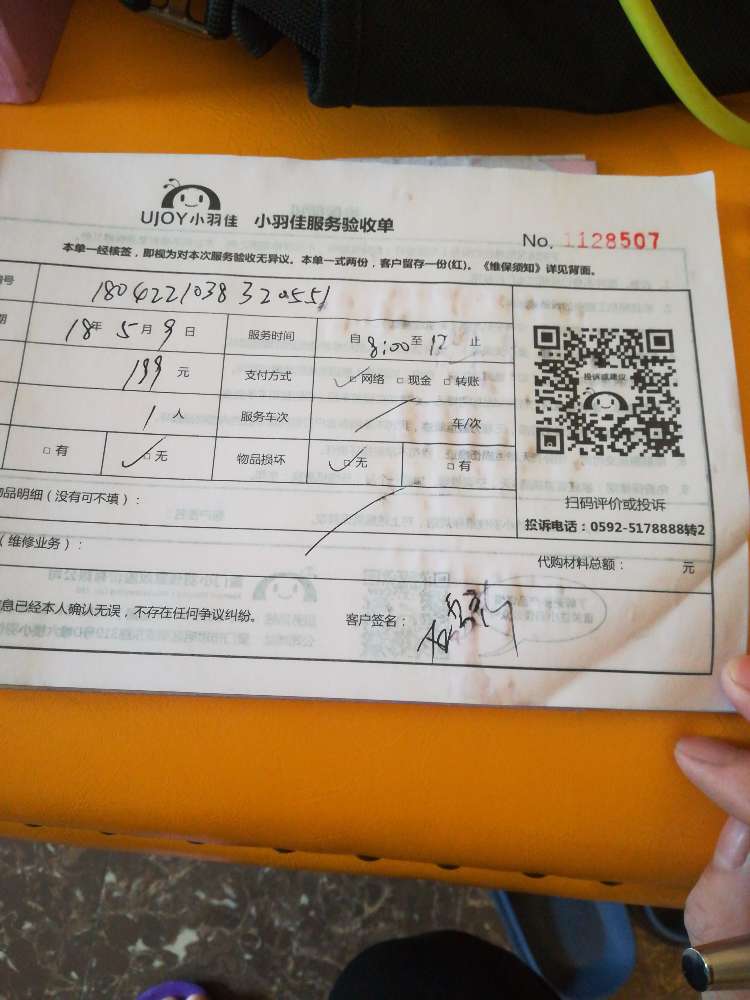 UJOY小羽佳 小羽佳服务验收单
No. 1128507
本单一经核签，即视为对本次服务验收无异议。本单一式两份，客户留存一份(红)。《维保须知》详见背面。
编号 1804221038320551
期 18年 5月 9日 服务时间 自 8:00 至 12 止
199 元 支付方式 ✓□网络 □现金 □转账
1 人 服务车次 车/次
□有 ✓□无 物品损坏 ✓□无 □有
投诉或建议
扫码评价或投诉
投诉电话：0592-5178888转2
物品明细（没有可不填）：
（维修业务）：
代购材料总额： 元
信息已经本人确认无误，不存在任何争议纠纷。 客户签名：